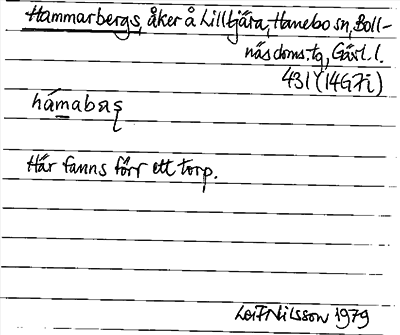 Hammarbergs, åker å Lilltjära, Hanebo sn, Boll-
näs doms:tg, Gävl. l.
431 (14G7i)
håmabaʂ
Här fanns förr ett torp.
Leif Nilsson 1979